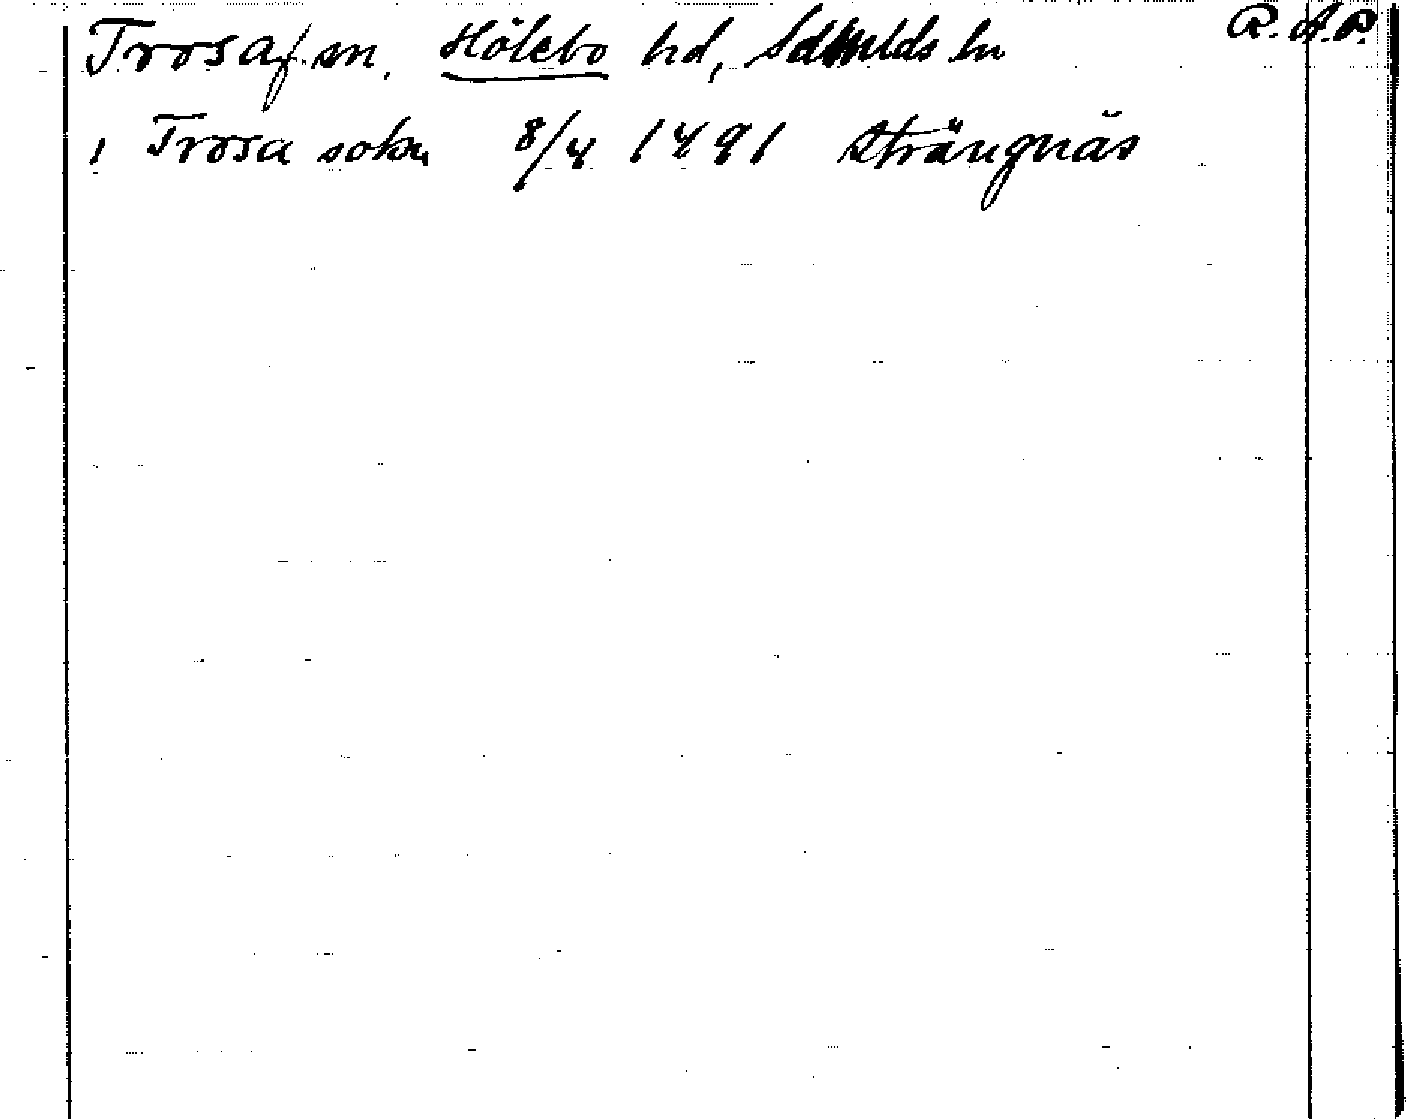 Trosa f. sn, Hölebo hd, Sdmnlds ln R.A.P.
i Trosa sokn 8/4 1491 Strängnäs